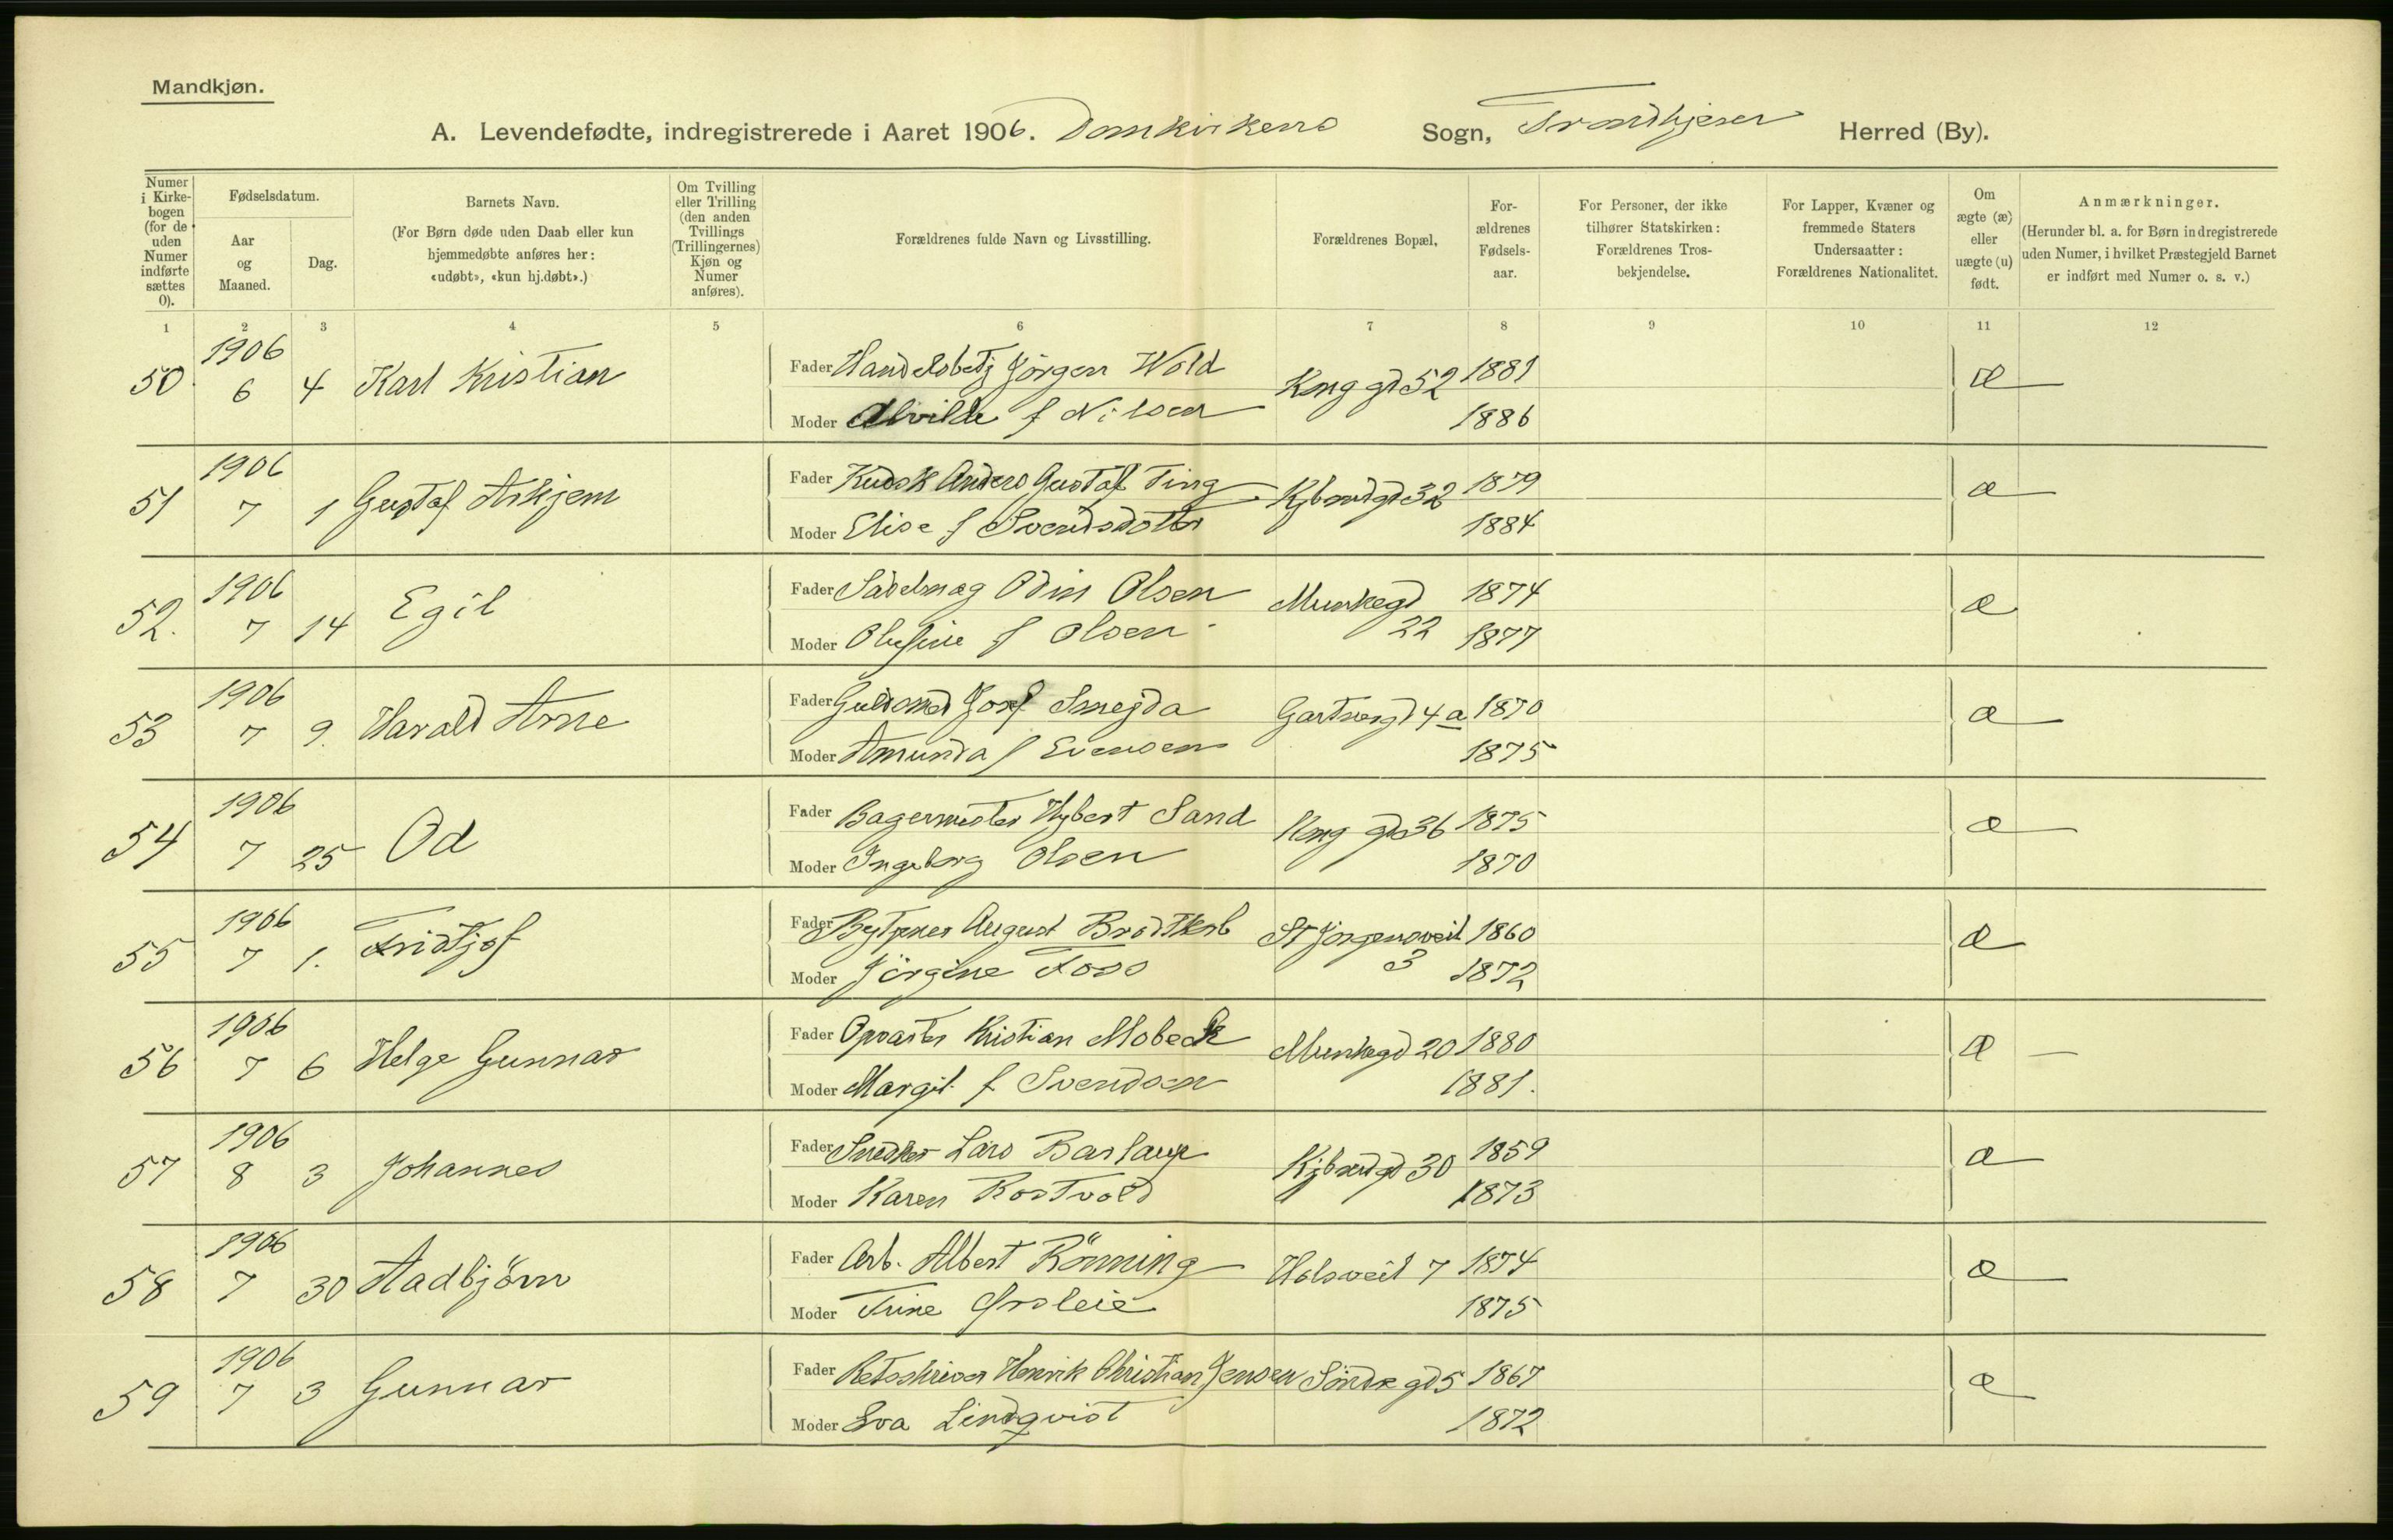 Mandkjøn.
A. Levendefødte, indregistrerede i Aaret 1906. Domkirkens Sogn, Trondhjem Herred (By).
Numer i Kirkebogen (for de uden Numer indførte sættes 0).
Fødselsdatum.
Aar og Maaned.
Dag.
Barnets Navn.
(For Børn døde uden Daab eller kun hjemmedøbte anføres her: «udøbt», «kun hj.døbt».)
Om Tvilling eller Trilling (den anden Tvillings (Trillingernes) Kjøn og Numer anføres).
Forældrenes fulde Navn og Livsstilling.
Forældrenes Bopæl,
Forældrenes Fødselsaar.
For Personer, der ikke tilhører Statskirken: Forældrenes Trosbekjendelse.
For Lapper, Kvæner og fremmede Staters Undersaatter: Forældrenes Nationalitet.
Om ægte (æ) eller uægte (u) født.
Anmærkninger.
(Herunder bl. a. for Børn indregistrerede uden Numer, i hvilket Præstegjeld Barnet er indført med Numer o. s. v.)
1 2 3 4 5 6 7 8 9 10 11 12
50 1906 6 4 Karl Kristian Fader Handelsbetj Jörgen Wold Kong gd 52 1881 æ
Moder Alvilde f Nilsen 1886
51 1906 7 1 Gustaf Askjem Fader Kudsk Anders Gustaf Ting Kjbmdgd 32 1879 æ
Moder Elise f Svendsdotter 1884
52. 1906 7 14 Egil Fader Sadelmag Odin Olsen Munkegd 22 1874 æ
Moder Olufine f Olsen 1877
53 1906 7 9. Harald Arne Fader Guldsmed Josef Smejda Gartnergd 4a 1870 æ
Moder Amunda f Evensen 1875
54 1906 7 25 Od Fader Bagermester Hybert Sand Kong gd 36 1875 æ
Moder Ingeborg Olsen 1870
55 1906 7 1. Fridtjof Fader August Brodtkorb St Jörgensveit 3 1860 æ
Moder Jörgine Foss 1872
56 1906 7 6 Helge Gunnar Fader Opvarter Kristian Mobeck Munkegd 20 1880 æ
Moder Margit f Svendsen 1881.
57 1906 8 3 Johannes Fader Snedker Lars Barlaup Kjbmdgd 30 1859 æ
Moder Karen Rostvold 1873
58 1906 7 30 Aadbjörn Fader Arb. Albert Rönning Holsveit 7 1874 æ
Moder Trine 1875
59 1906 7 3 Gunnar Fader Retsskriver Henrik Christian Jensen Söndre gd 5 1867 æ
Moder Eva Lindqvist 1872